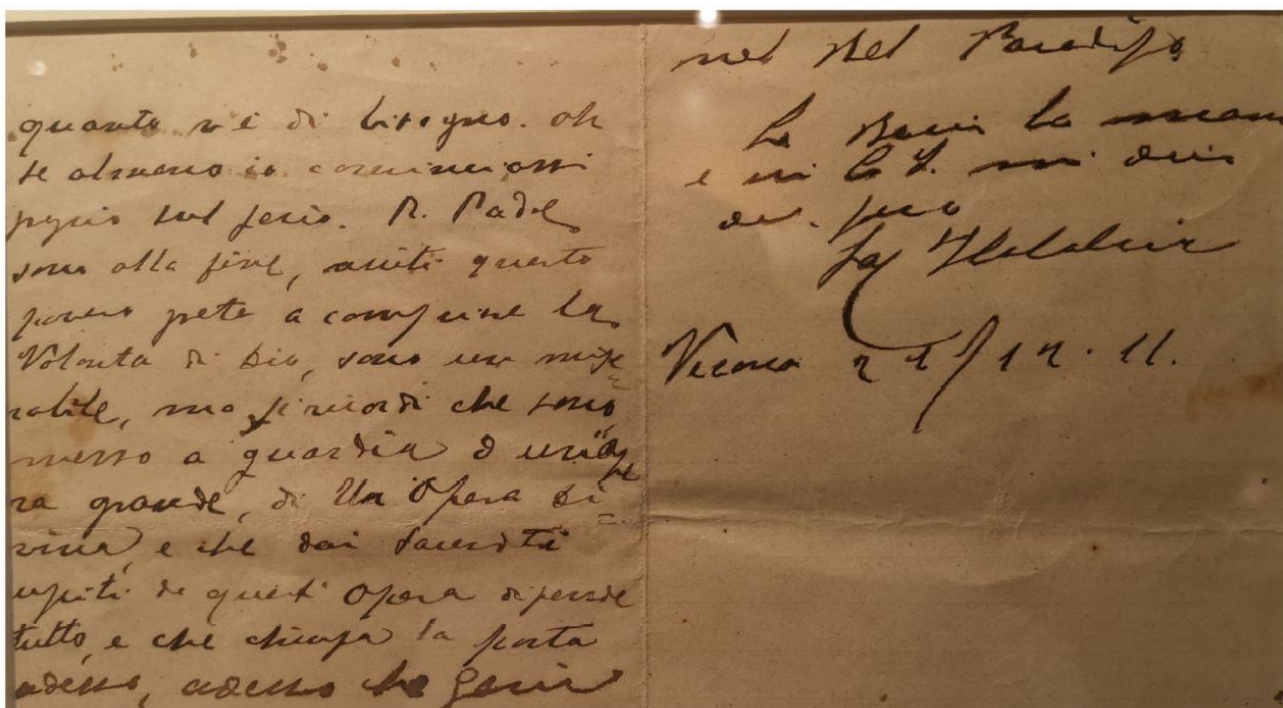 quanto vi è di bisogno. oh
se almeno io cominciassi
proprio sul serio. R. Padre
sono alla fine, aiuti questo
povero prete a compire la
Volonta di Dio, sono un mise
rabile, ma si ricordi che sono
messo a guardia d'un'Ope
ra grande, di Un Opera Di
vina, e che dai Sacerdoti
di quest'Opera dipende
tutto, e che la porta
adesso, adesso che Gesù
nel bel Paradiso
Le bacio la mano
e mi
suo
Calabria
Verona 21/12.11.